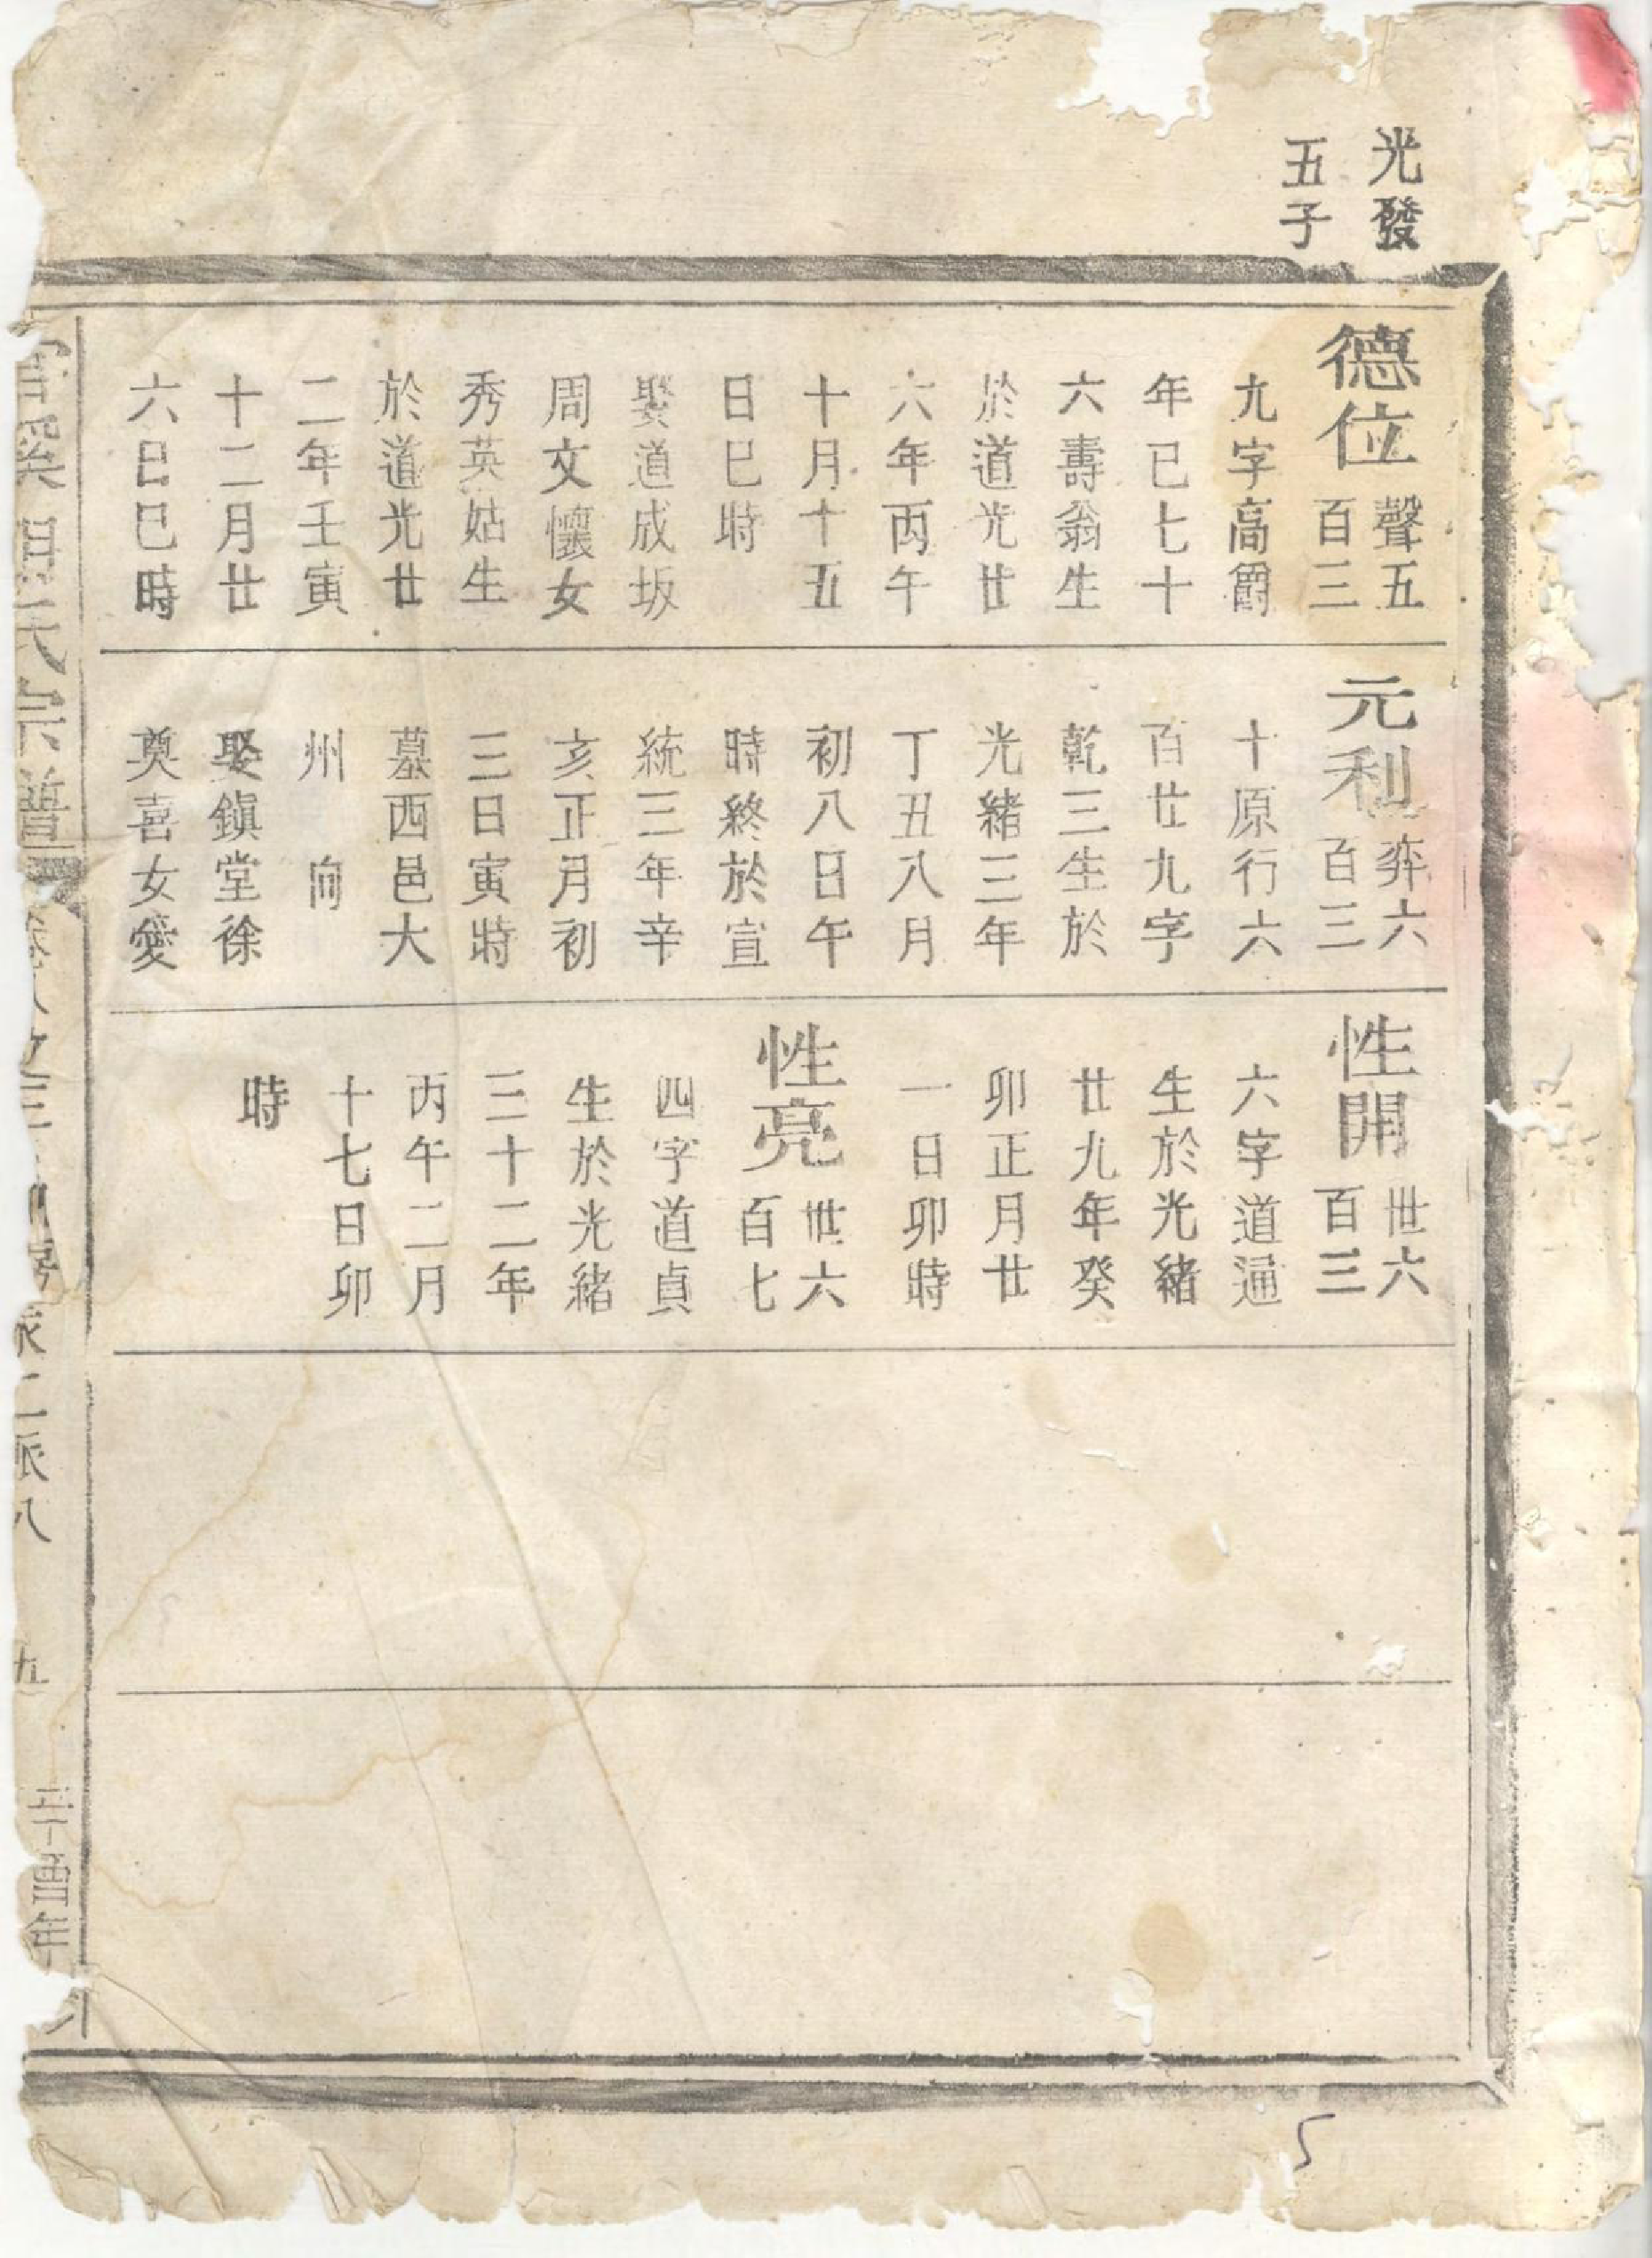 光發
五子
德位
聲五
百三
九字高爵
年已七十
六壽翁生
於道光廿
六年丙午
十月十五
日巳時
娶道成坂
周文懷女
秀英姑生
於道光廿
二年壬寅
十二月廿
六日巳時
元利
弈六
百三
十原行六
百廿九字
乾三生於
光緒三年
丁丑八月
初八日午
時終於宣
統三年辛
亥正月初
三日寅時
墓西邑大
州 向
娶鎮堂徐
奠喜女愛
性開
世六
百三
六字道通
生於光緒
廿九年癸
卯正月廿
一日卯時
性亮
世六
百七
四字道貞
生於光緒
三十二年
丙午二月
十七日卯
時
氏宗譜
二派八
九
年
5